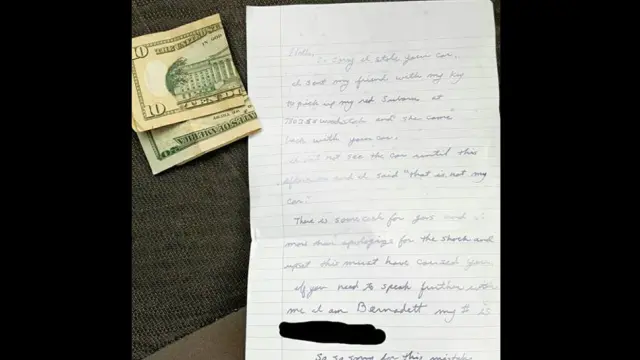 10
Hello,
So sorry I stole your car..
I sent my friend with my key
to pick up my red Subaru at
Woodstock and she came
back with your car.
I did not see the car until this
afternoon and I said "that is not my
car."
There is some cash for gas and I
more than apologize for the shock and
upset this must have caused you
If you need to speak further with
me I am Bernadett my # is
So so sorry for this mistake